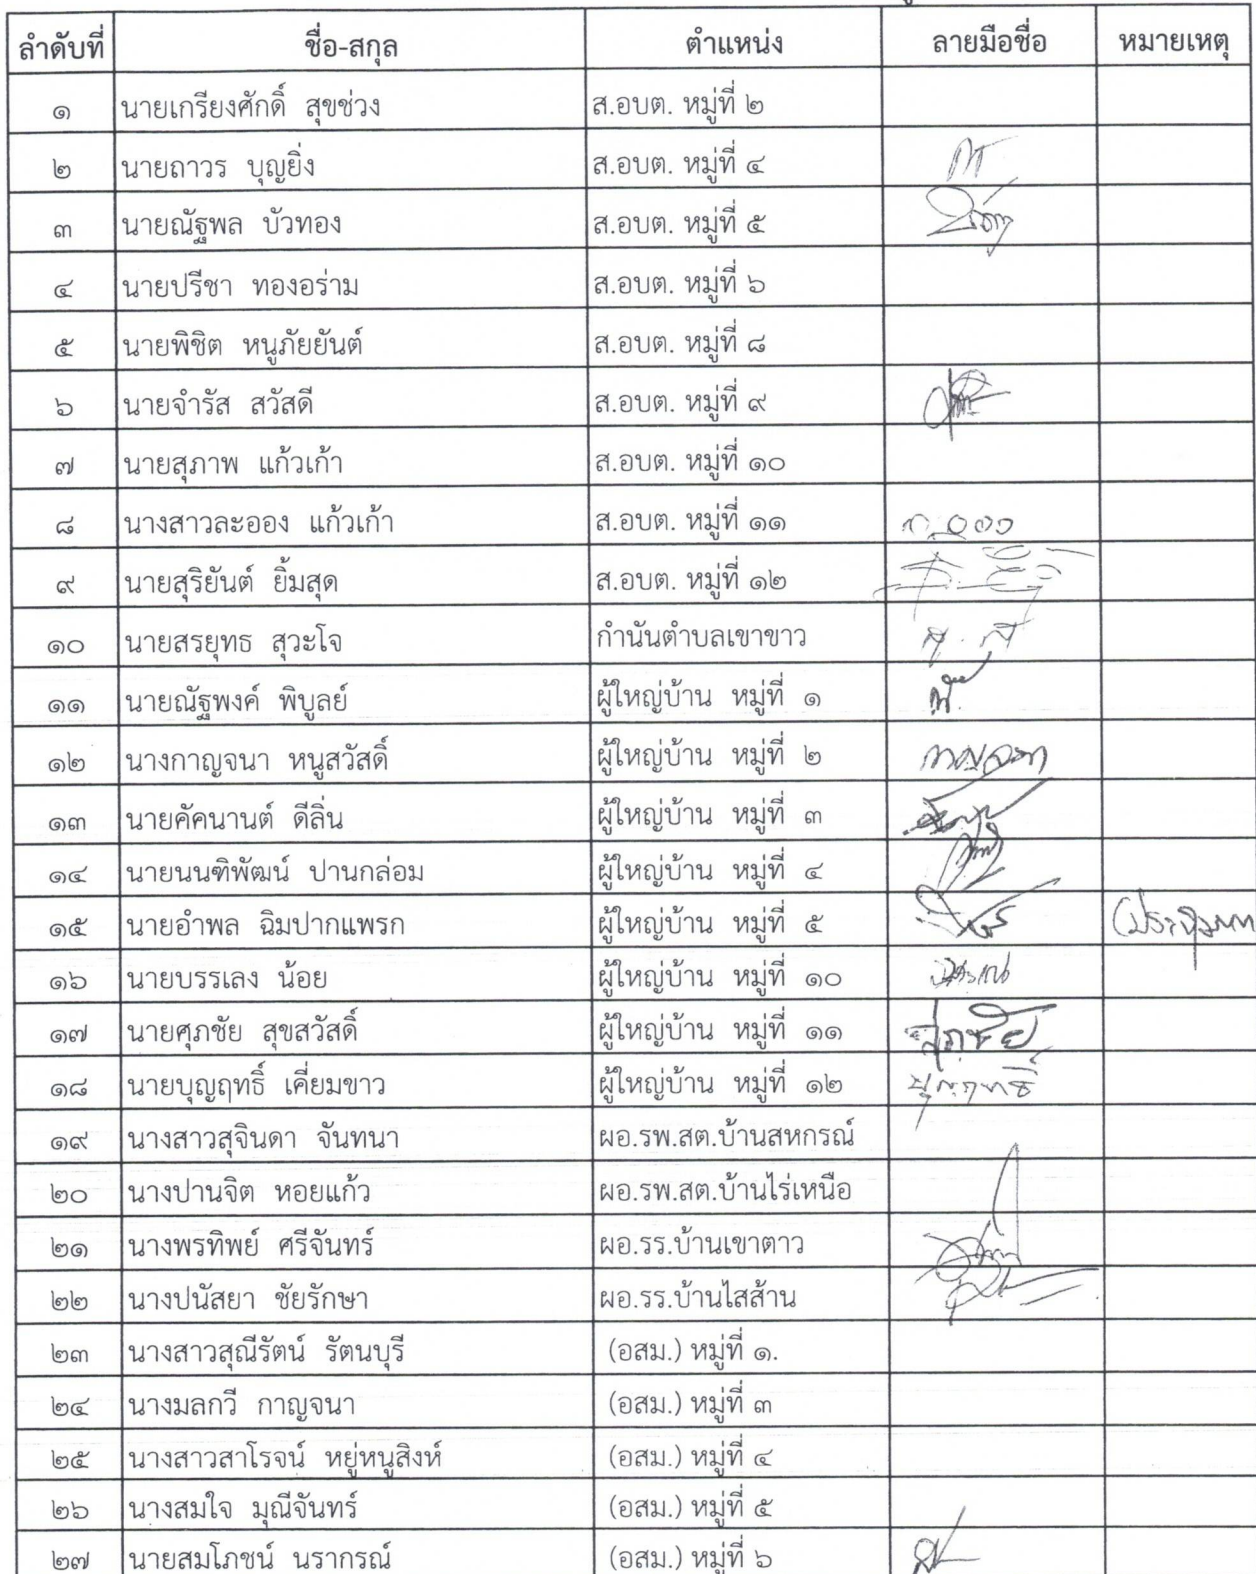 ลำดับที่ ชื่อ-สกุล ตำแหน่ง ลายมือชื่อ หมายเหตุ
๑ นายเกรียงศักดิ์ สุขช่วง ส.อบต. หมู่ที่ ๒
๒ นายถาวร บุญยิ่ง ส.อบต. หมู่ที่ ๔
๓ นายณัฐพล บัวทอง ส.อบต. หมู่ที่ ๕
๔ นายปรีชา ทองอร่าม ส.อบต. หมู่ที่ ๖
๕ นายพิชิต หนูภัยยันต์ ส.อบต. หมู่ที่ ๘
๖ นายจำรัส สวัสดี ส.อบต. หมู่ที่ ๙
๗ นายสุภาพ แก้วเก้า ส.อบต. หมู่ที่ ๑๐
๘ นางสาวละออง แก้วเก้า ส.อบต. หมู่ที่ ๑๑
๙ นายสุริยันต์ ยิ้มสุด ส.อบต. หมู่ที่ ๑๒
๑๐ นายสรยุทธ สุวะโจ กำนันตำบลเขาขาว
๑๑ นายณัฐพงค์ พิบูลย์ ผู้ใหญ่บ้าน หมู่ที่ ๑
๑๒ นางกาญจนา หนูสวัสดิ์ ผู้ใหญ่บ้าน หมู่ที่ ๒ กาญจนา
๑๓ นายคัคนานต์ ดีลิ่น ผู้ใหญ่บ้าน หมู่ที่ ๓
๑๔ นายนนฑิพัฒน์ ปานกล่อม ผู้ใหญ่บ้าน หมู่ที่ ๔
๑๕ นายอำพล ฉิมปากแพรก ผู้ใหญ่บ้าน หมู่ที่ ๕
๑๖ นายบรรเลง น้อย ผู้ใหญ่บ้าน หมู่ที่ ๑๐
๑๗ นายศุภชัย สุขสวัสดิ์ ผู้ใหญ่บ้าน หมู่ที่ ๑๑ ศุภชัย
๑๘ นายบุญฤทธิ์ เคี่ยมขาว ผู้ใหญ่บ้าน หมู่ที่ ๑๒ บุญฤทธิ์
๑๙ นางสาวสุจินดา จันทนา ผอ.รพ.สต.บ้านสหกรณ์
๒๐ นางปานจิต หอยแก้ว ผอ.รพ.สต.บ้านไร่เหนือ
๒๑ นางพรทิพย์ ศรีจันทร์ ผอ.รร.บ้านเขาตาว
๒๒ นางปนัสยา ชัยรักษา ผอ.รร.บ้านไสส้าน
๒๓ นางสาวสุณีรัตน์ รัตนบุรี (อสม.) หมู่ที่ ๑.
๒๔ นางมลกวี กาญจนา (อสม.) หมู่ที่ ๓
๒๕ นางสาวสาโรจน์ หยู่หนูสิงห์ (อสม.) หมู่ที่ ๔
๒๖ นางสมใจ มุณีจันทร์ (อสม.) หมู่ที่ ๕
๒๗ นายสมโภชน์ นรากรณ์ (อสม.) หมู่ที่ ๖